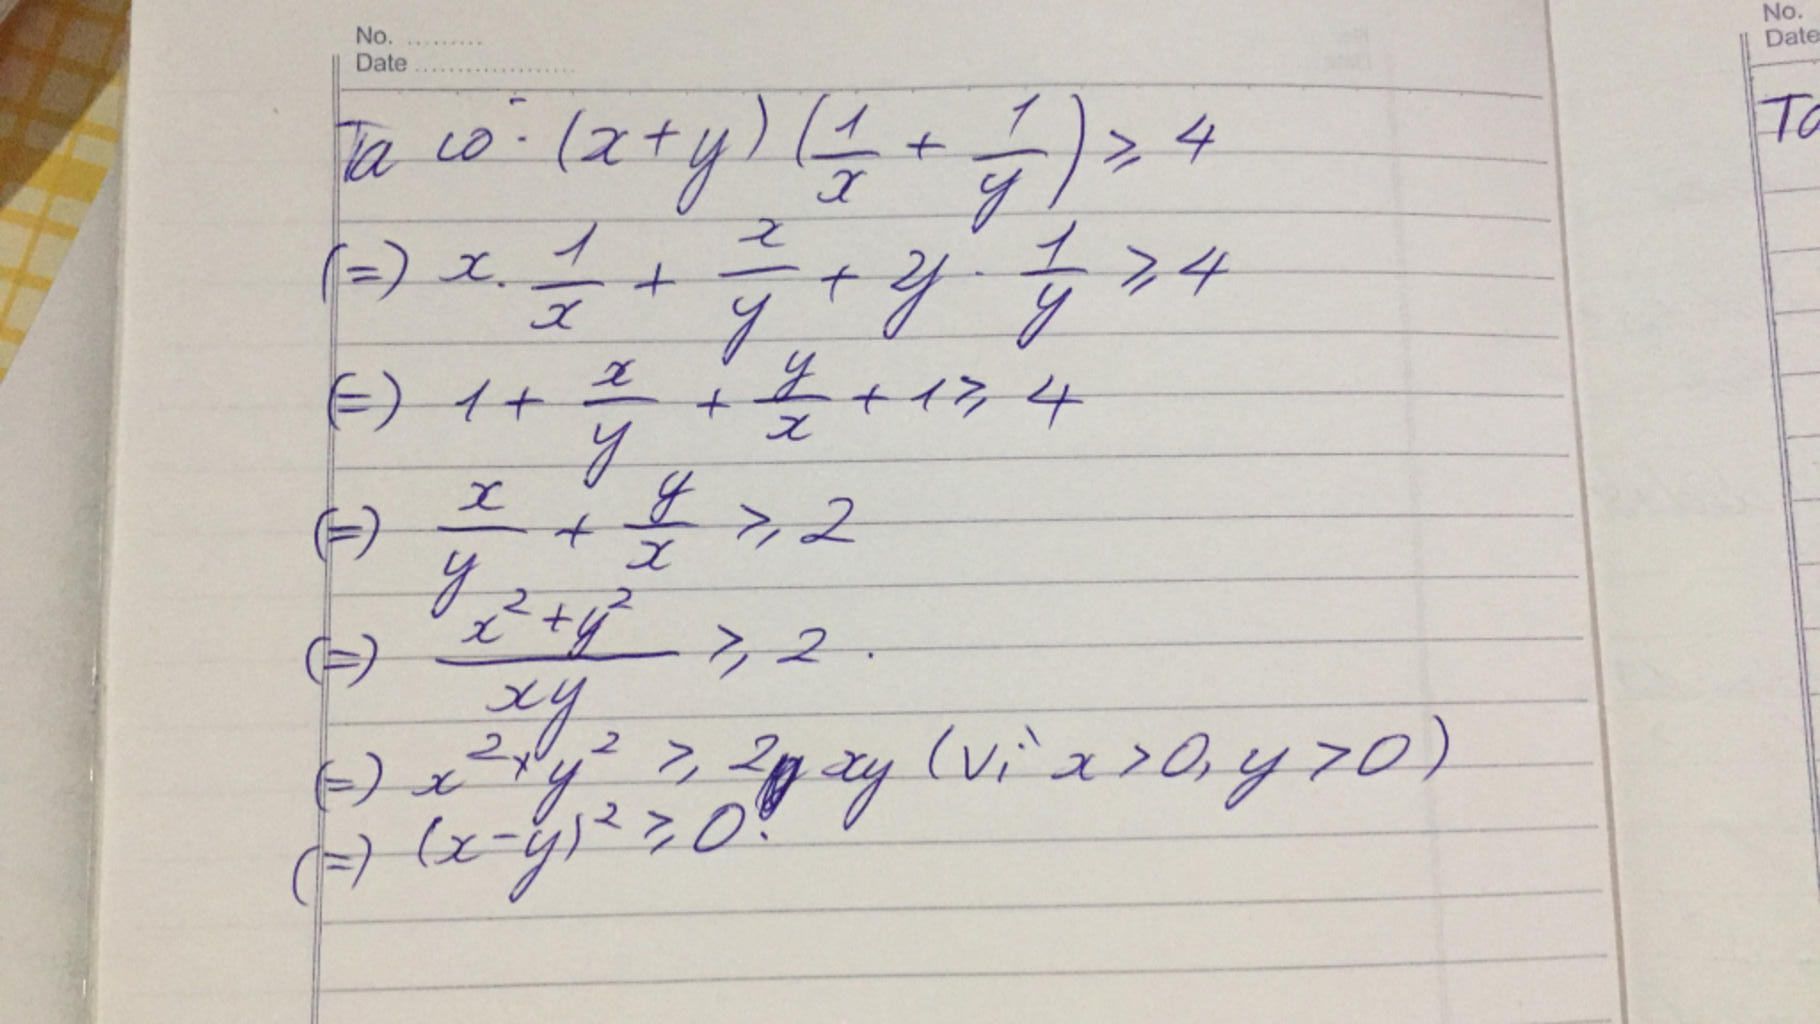 No. .........
Date ...................
Ta có: (x+y)(1/x + 1/y) ≥ 4
(=) x. 1/x + x/y + y . 1/y ≥ 4
(=) 1 + x/y + y/x + 1 ≥ 4
(=) x/y + y/x ≥ 2
(=) (x² + y²)/xy ≥ 2 .
(=) x² + y² ≥ 2 xy (Vì x > 0, y > 0)
(=) (x - y)² ≥ 0.
No.
Date
Ta